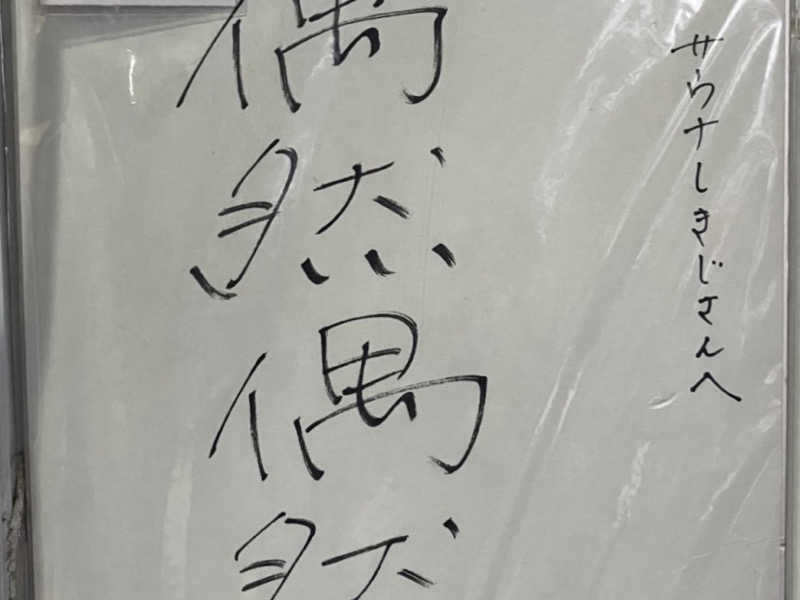 サウナしきじさんへ
偶然偶然